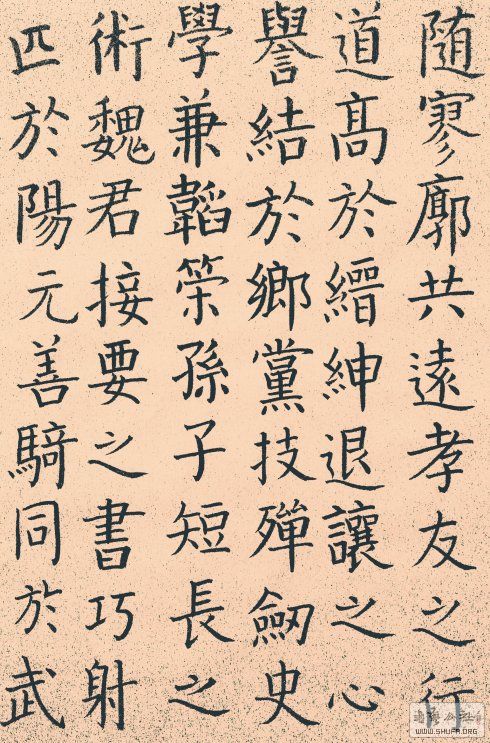 随寥廓共遠孝友之行
道髙於縉紳退讓之心
譽結於鄉黨技殫劒史
學兼韜筞孫子短長之
術魏君接要之書巧射
匹於陽元善騎同於武
WWW.SHUFA.ORG